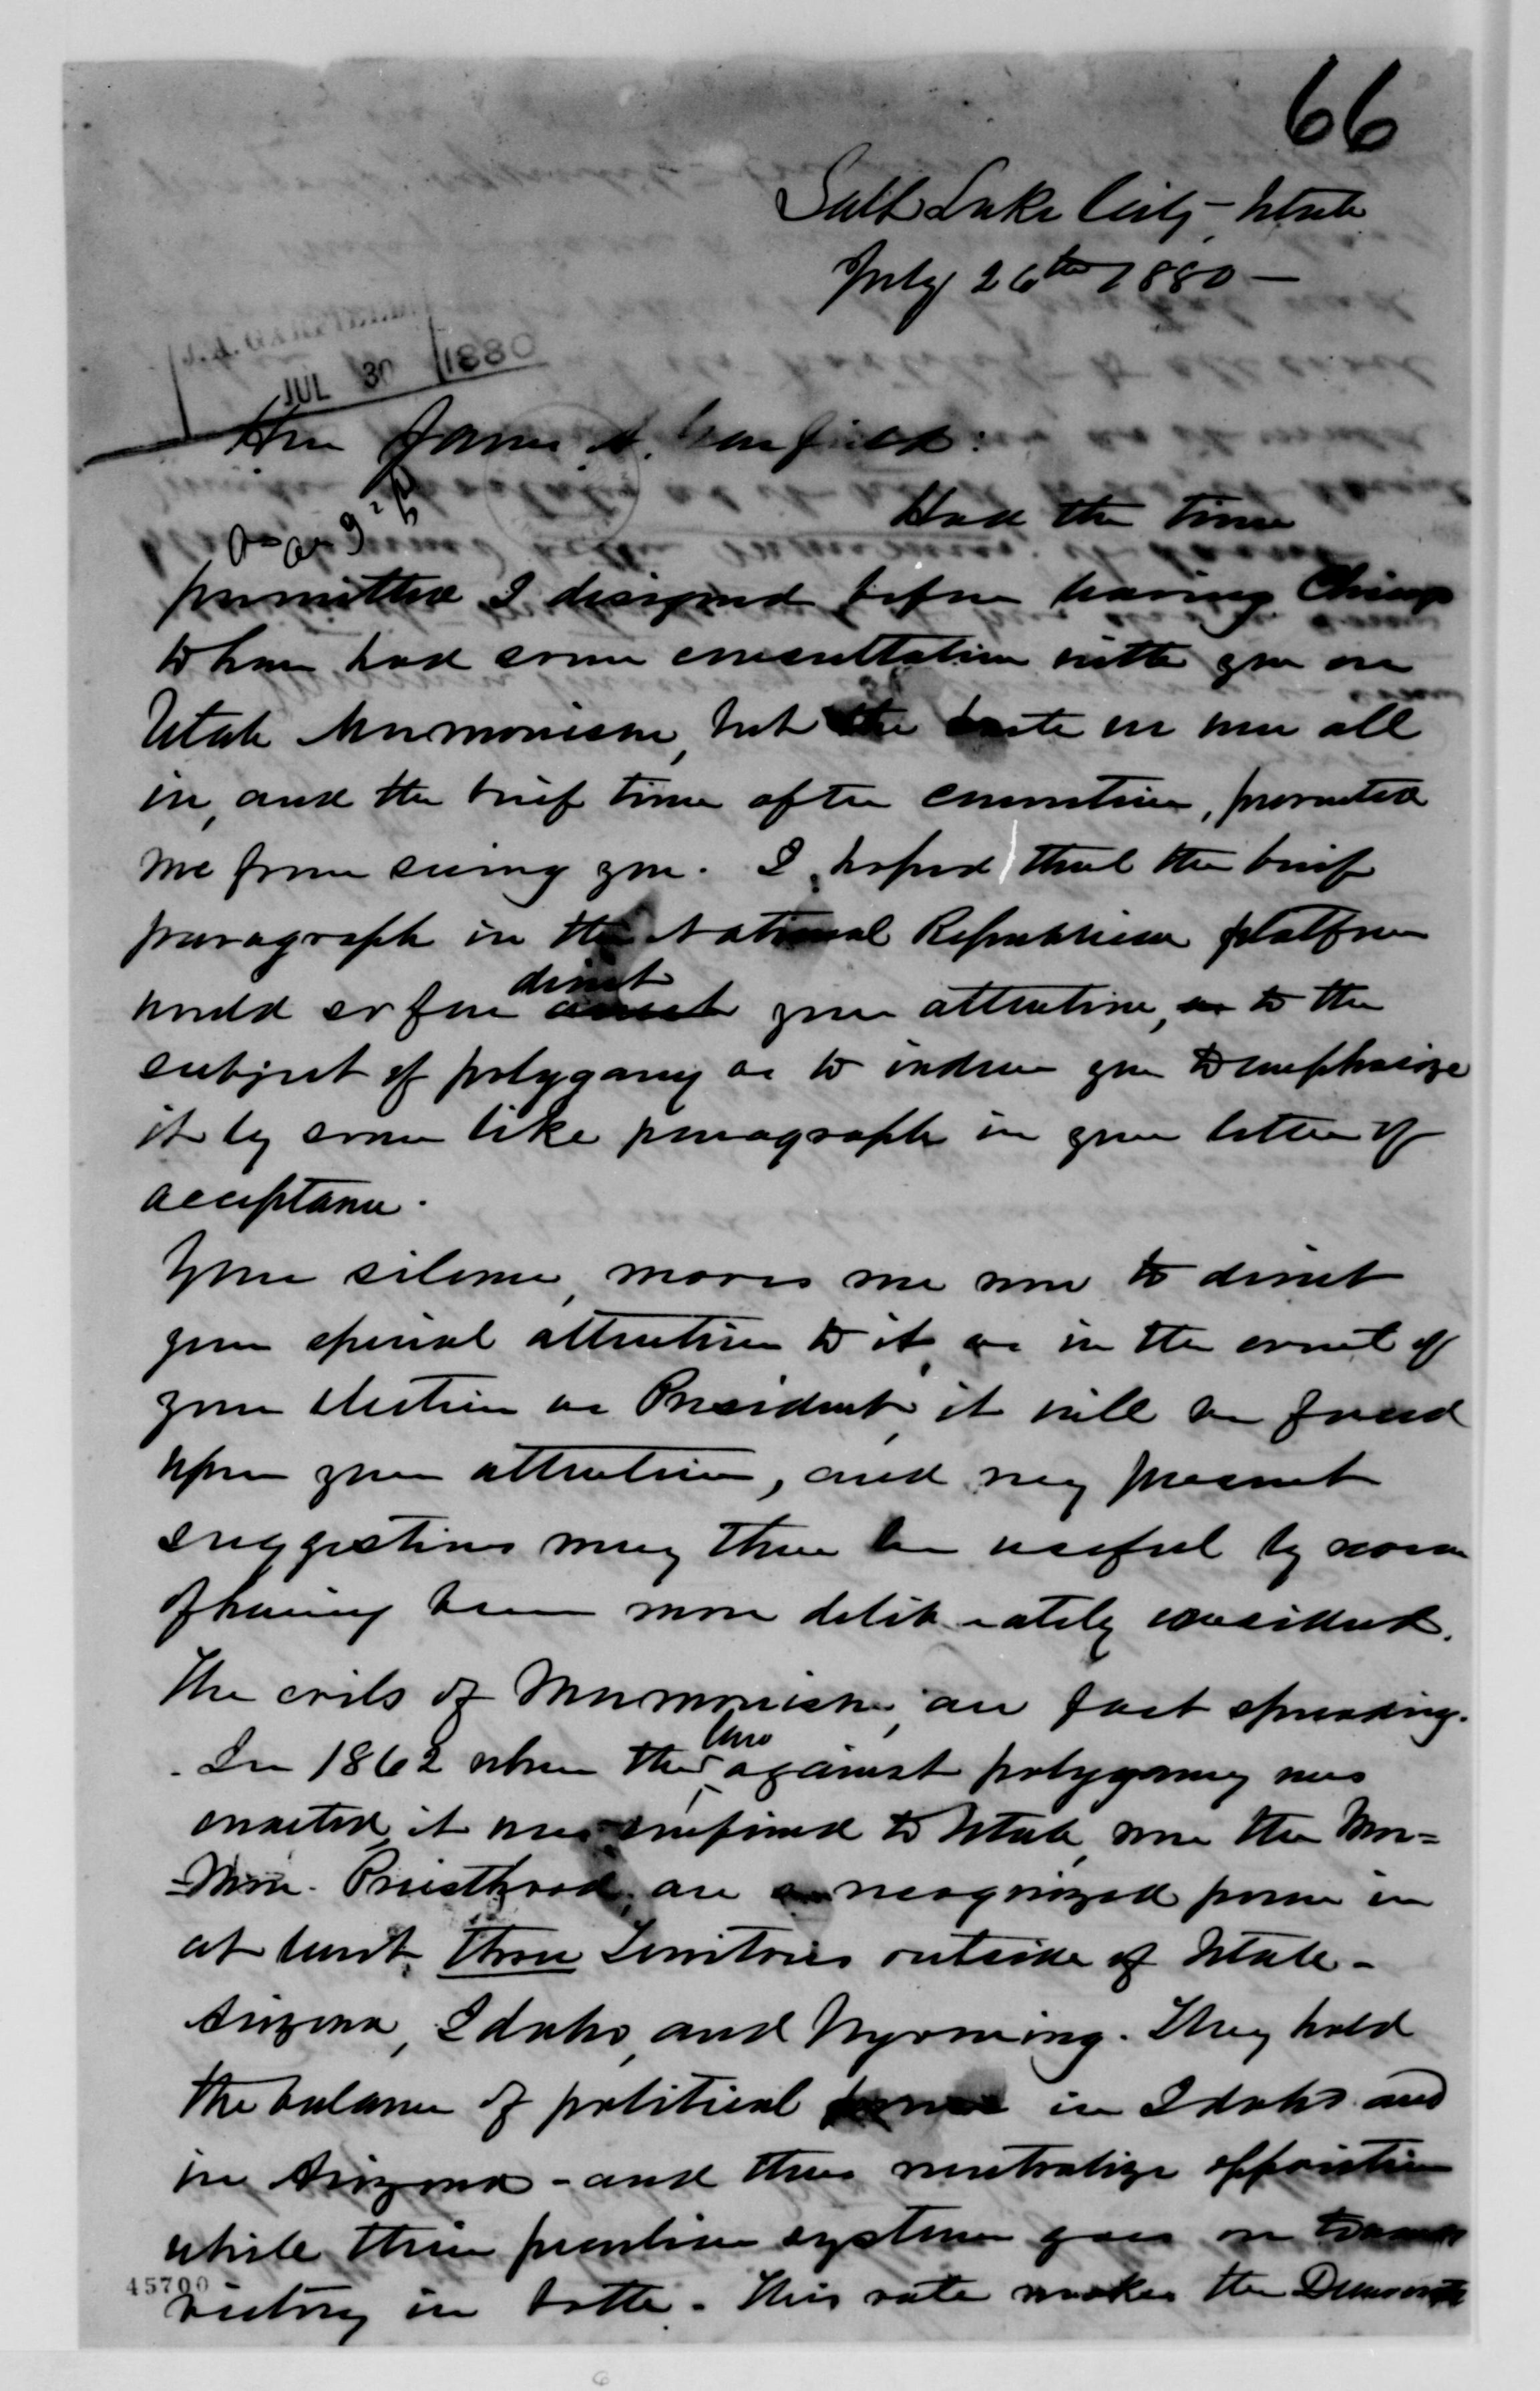 66
Salt Lake City - Utah
July 26th 1880 -
J. A. GARFIELD
JUL 30 1880
Hon James A. Garfield:
Had the time
permitted I designed before leaving Chicago
to have had some consultation with you on
Utah Mormonism, but the haste in
in, and the brief time after convention, prevented
me from seeing you. I hoped that the brief
paragraph in the National Republican platform
would so far direct your attention, to the
subject of polygamy as to induce you to emphasize
it by some like paragraph in your letter of
acceptance.
Your silence, moves me now to direct
your special attention to it, as in the event of
your election as President, it will be forced
upon your attention, and my present
suggestions may then be useful by reason
of having been more deliberately considered.
The evils of Mormonism, are fast spreading.
In 1862 when the law against polygamy was
enacted, it was confined to Utah, now the Mor=
=mon Priesthood, are a recognized power in
at least three Territories outside of Utah -
Arizona, Idaho, and Wyoming. They hold
the balance of political power in Idaho and
in Arizona - and thus neutralize opposition
while their peculiar system goes on towards
victory in both. This vote makes the Democrats
45700